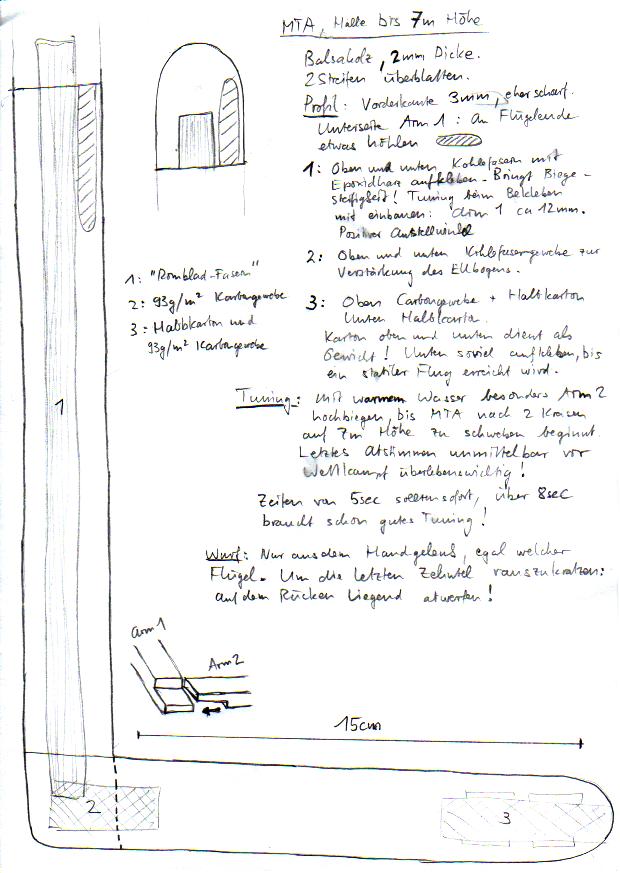 MTA, Halle bis 7m Höhe
Balsaholz, 2mm Dicke.
2 Streifen überblatten.
Profil: Vorderkante 3mm, eher scharf.
Unterseite Arm 1: An Flügelende
etwas höhlen
1: Oben und unten Kohlefasern mit
Epoxidharz aufkleben. Bringt Biege-
steifigkeit! Tuning beim Bekleben
mit einbauen: Arm 1 ca 12mm.
Positiver Anstellwinkel
2: Oben und unten Kohlefasergewebe zur
Verstärkung des Ellbogens.
3: Oben Carbongewebe + Halbkarton
Unten Halbkarton.
Karton oben und unten dient als
Gewicht! Unten soviel aufkleben, bis
ein stabiler Flug erreicht wird.
1: "Romblad-Fasern"
2: 93g/m² Karbongewebe
3: Halbkarton und
93g/m² Karbongewebe
Tuning: Mit warmem Wasser besonders Arm 2
hochbiegen, bis MTA nach 2 Kreisen
auf 7m Höhe zu schweben beginnt.
Letztes Abstimmen unmittelbar vor
Wettkampf überlebenswichtig!
Zeiten von 5sec sollten sofort, über 8sec
braucht schon gutes Tuning!
Wurf: Nur aus dem Handgelenk, egal welcher
Flügel. Um die letzten Zehntel rauszukratzen:
auf dem Rücken liegend abwerfen!
Arm 1
Arm 2
15cm
1
2
3